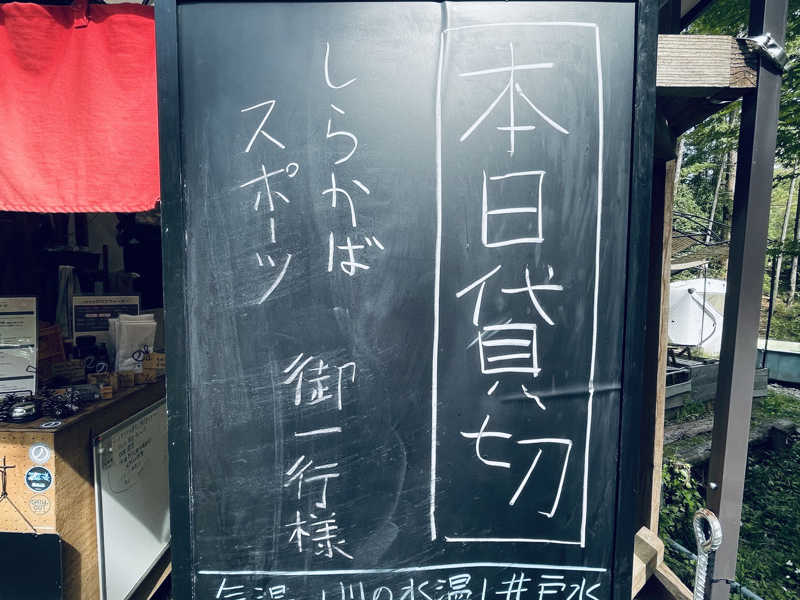 本日貸切
しらかば
スポーツ
御一行様
気温 川の水温 井戸水